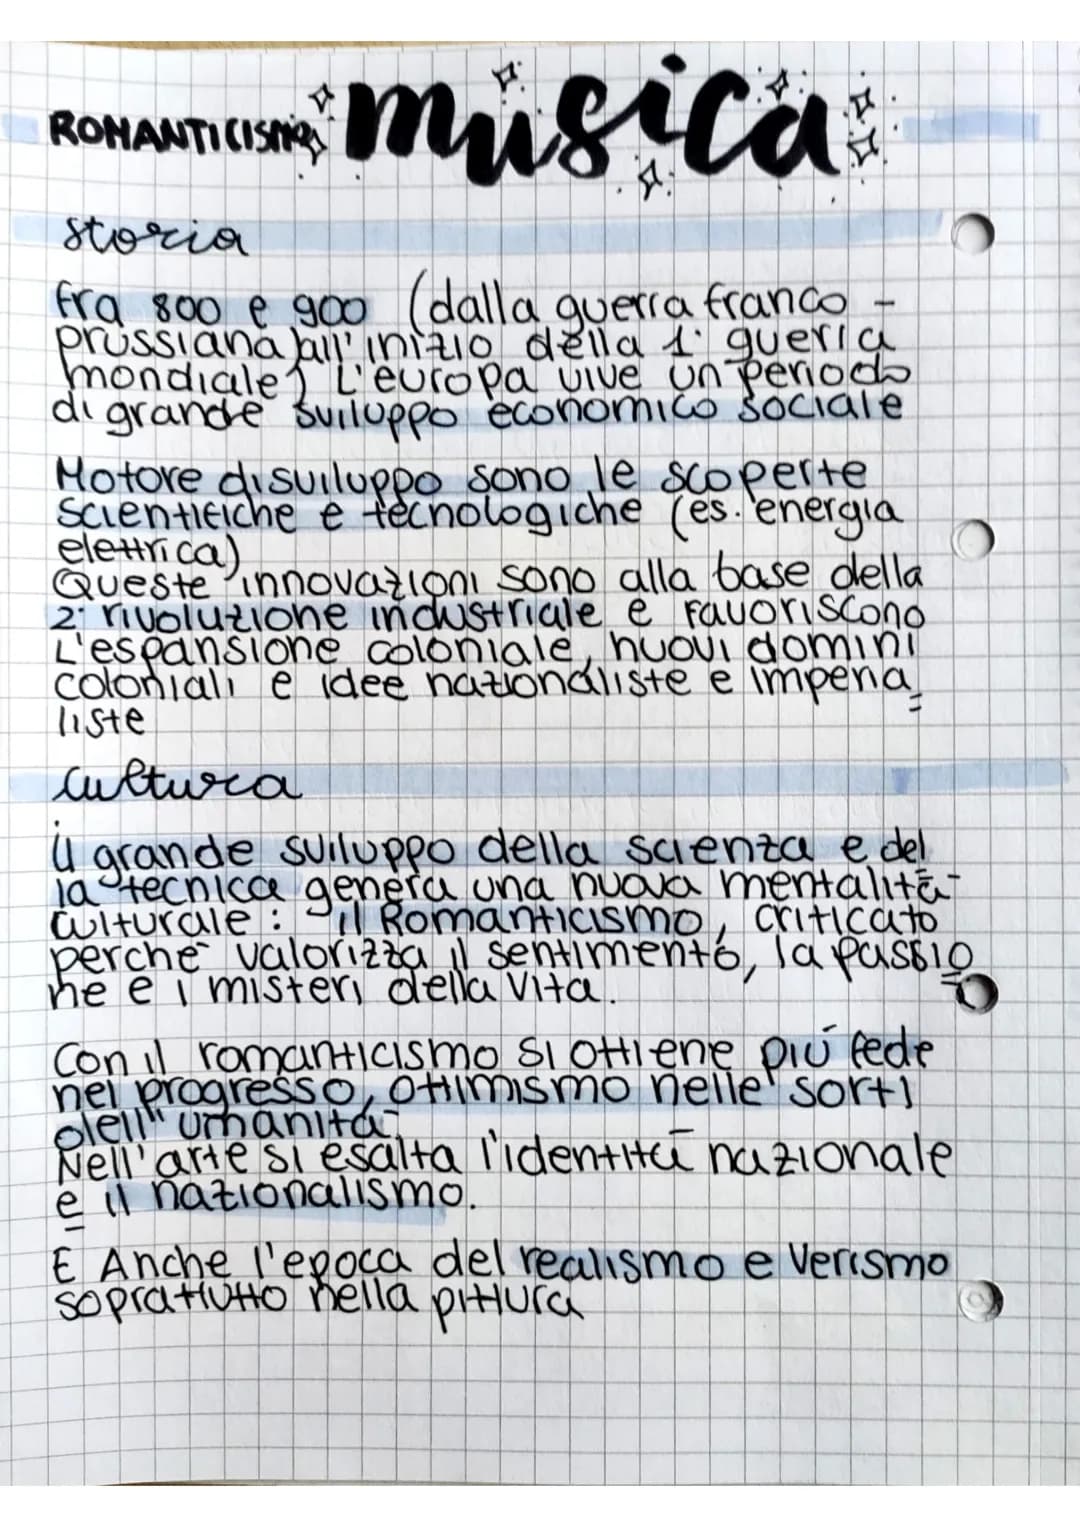 ROMANTICISMO musica
storia
fra 800 e 900 (dalla guerra franco -
prussiana all'inizio della 1° guerra
mondiale) L'europa vive un periodo
di grande sviluppo economico sociale
Motore di sviluppo sono le scoperte
scientifiche e tecnologiche (es. energia
elettrica)
Queste innovazioni sono alla base della
2° rivoluzione industriale e favoriscono
L'espansione coloniale, nuovi domini
coloniali e idee nazionaliste e imperia=
liste
cultura
il grande sviluppo della scienza e del
la tecnica genera una nuova mentalità
culturale: il Romanticismo, criticato
perché valorizza il sentimento, la passio=
ne e i misteri della vita.
Con il romanticismo si ottiene più fede
nel progresso, ottimismo nelle sorti
dell'umanità
Nell'arte si esalta l'identità nazionale
e il nazionalismo.
E Anche l'epoca del realismo e verismo
soprattutto nella pittura